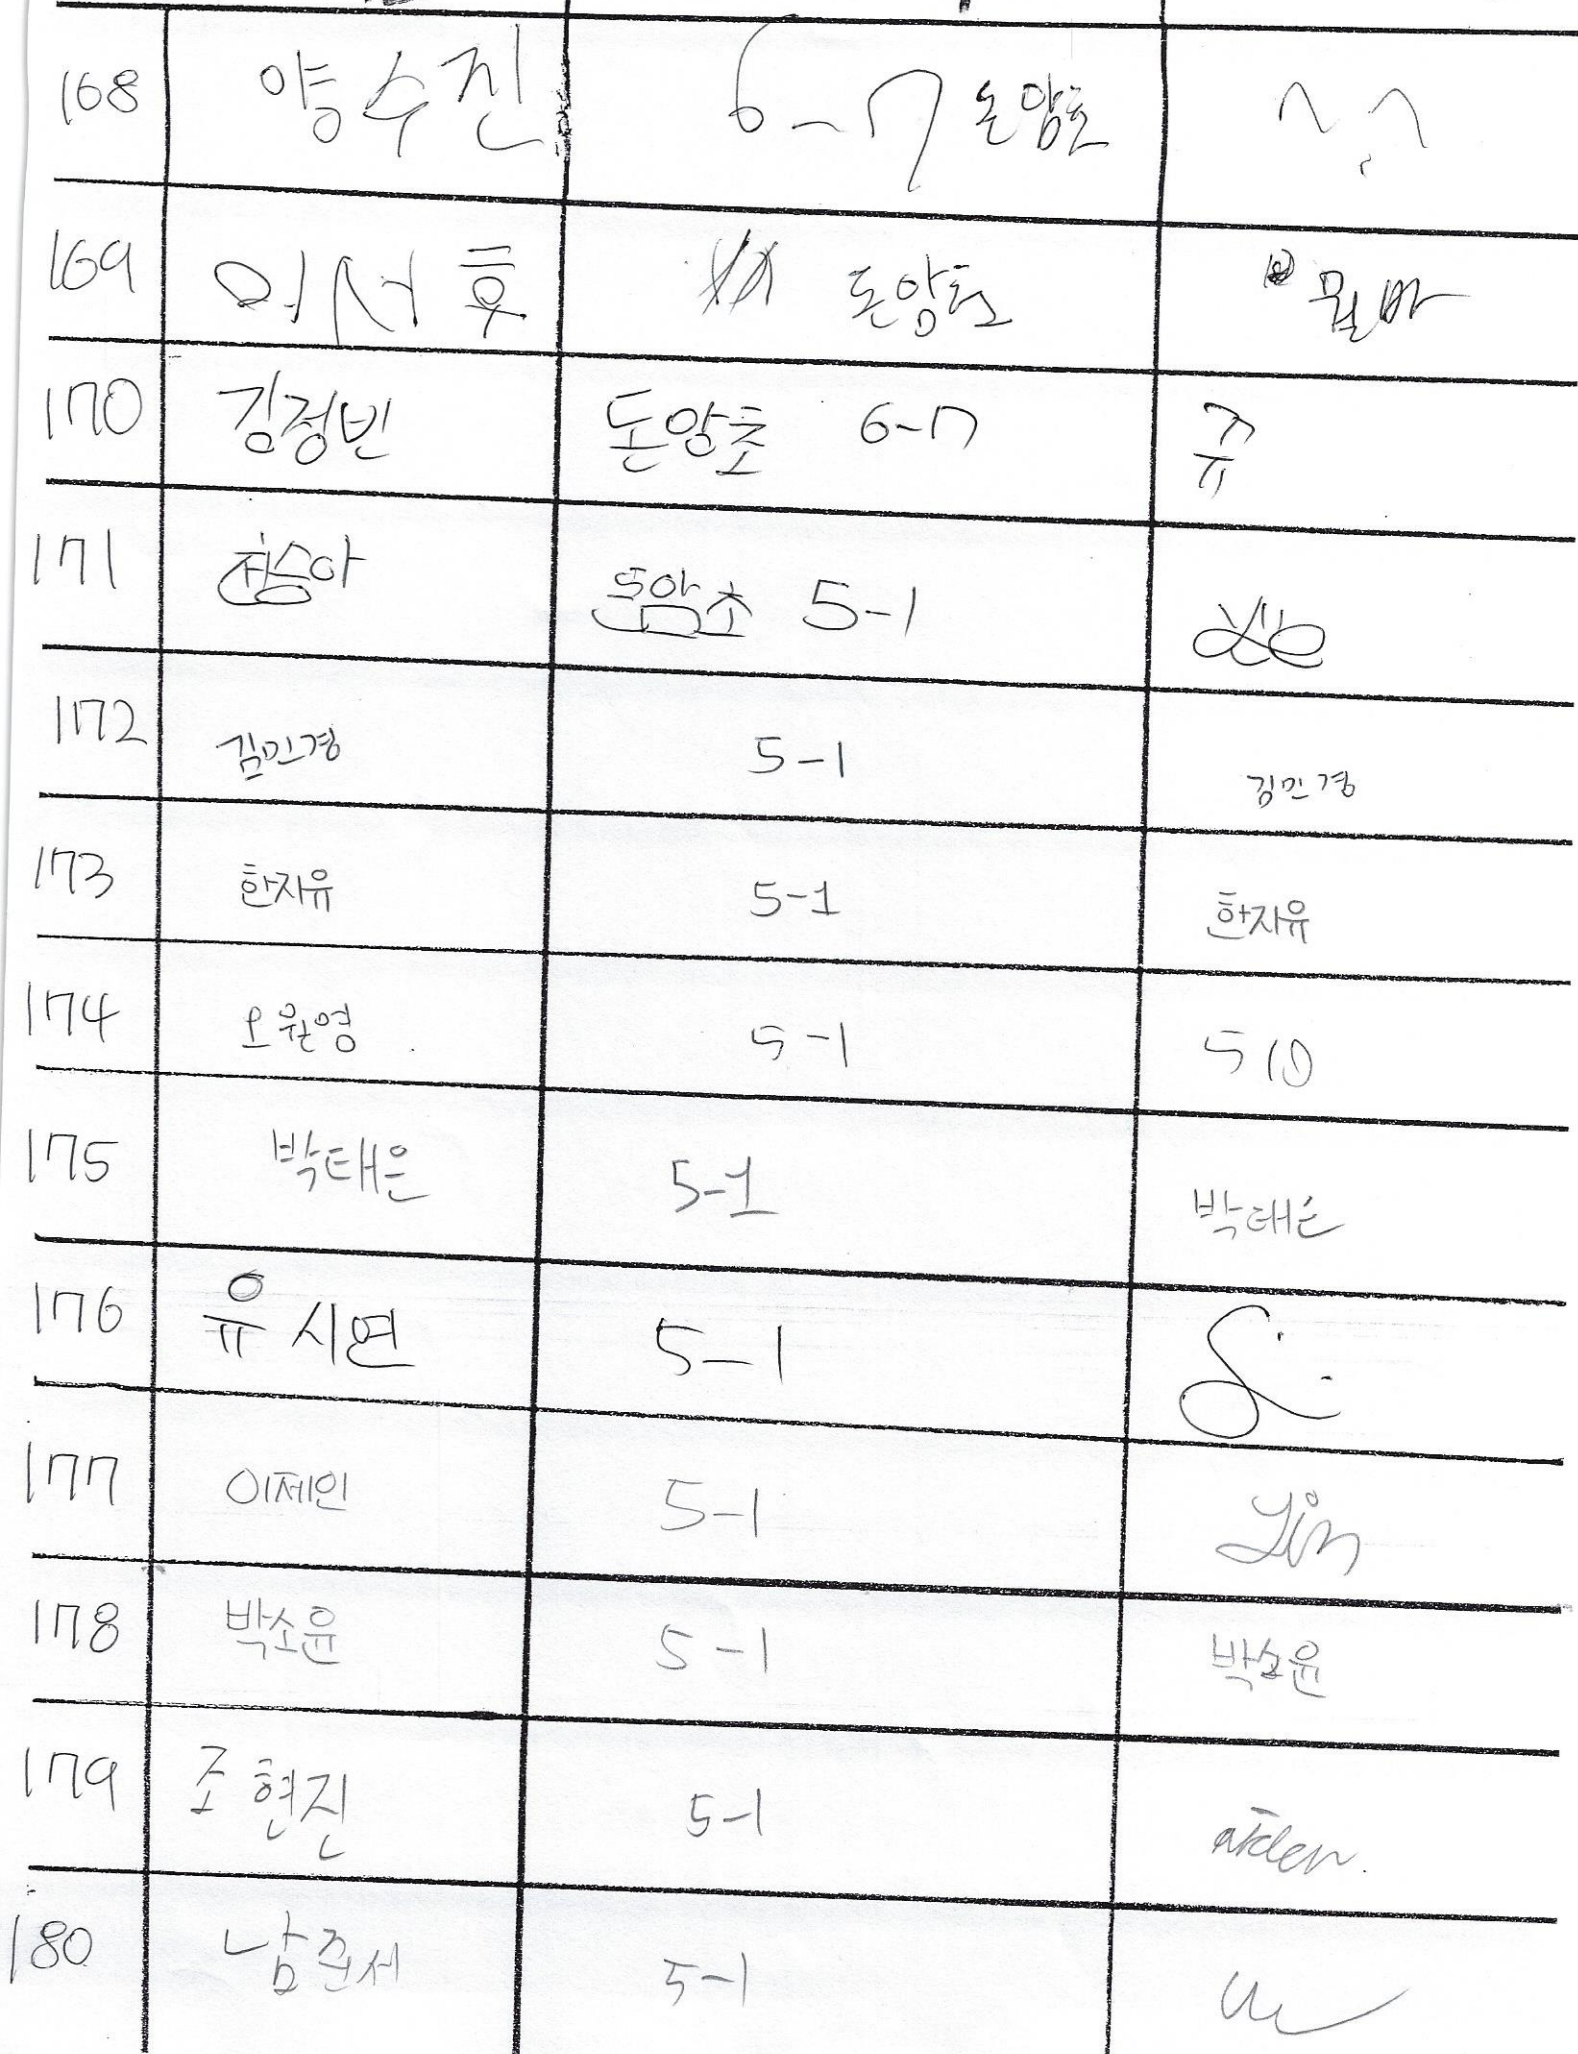 168 양수진 6-7 돈암초 ^.^
169 이서후 돈암초
170 김정빈 돈암초 6-7 쥬
171 정승아 돈암초 5-1
172 김민경 5-1 김민경
173 한지유 5-1 한지유
174 오원영 5-1 510
175 박태은 5-1 박태은
176 유시연 5-1
177 이제인 5-1
178 박소윤 5-1 박소윤
179 조현진 5-1 aiden.
180 남준서 5-1